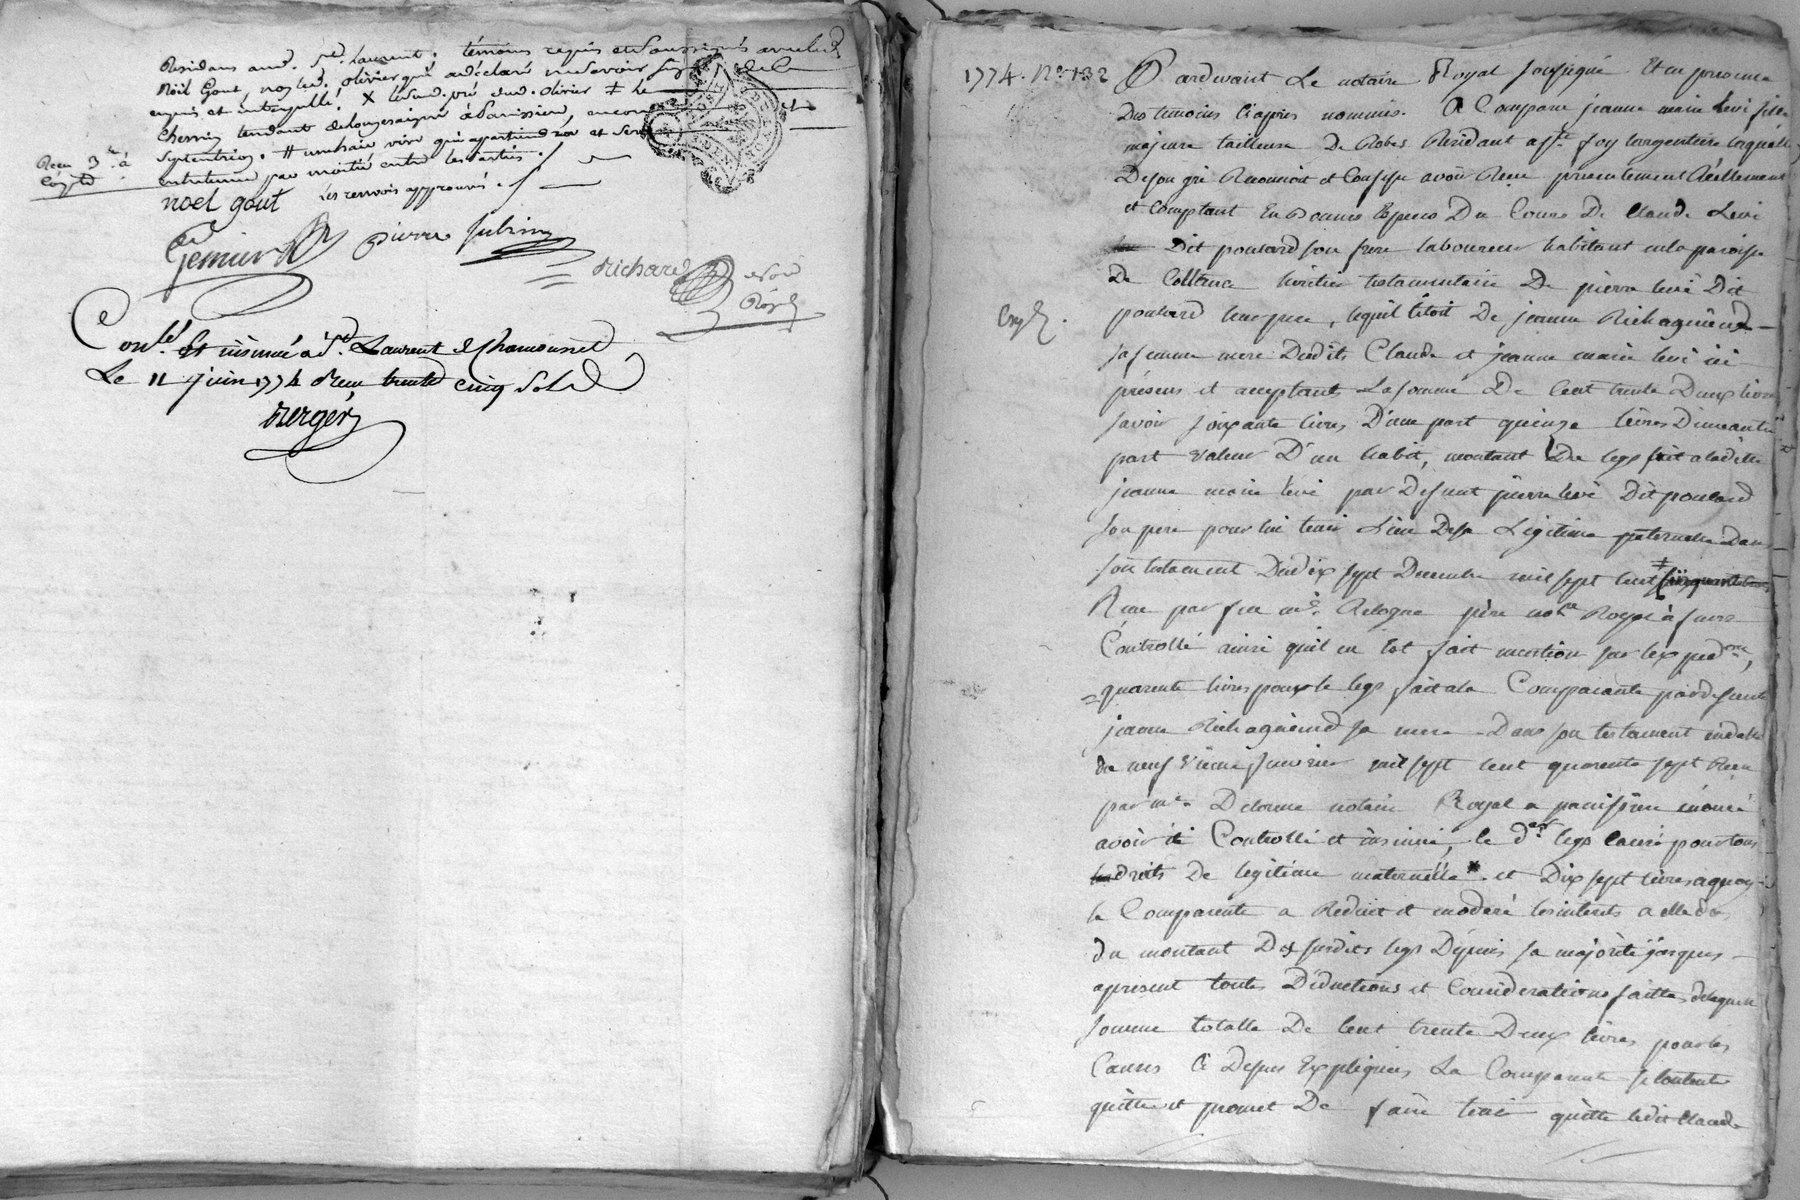 Residans aud. St. Laurent, témoins requis et soussignés avec led.
Noël Gout, non led. Olivier qui a déclaré ne savoir signer de ce
enquis et interpellé. X le sud. pré dud. Olivier ‡ le
chemin tendant de Longesaigne à Panissiere, encore
Septentrion. # une haie vive qui apartiendra et sera
entretenue par moitié entre les parties.
Les renvois approuvés.
Recu 3# à
Compte
noel gout
Pierre Jubin
Richard
Noé
Royal
Conlé. Et insinué a St. Laurent de Chamousset
Le 11 juin 1774 Reçu trente cinq Sols
Berger
1774. No. 132
Pardevant Le notaire Royal soussigné Et en presence
Des temoins Ciapres nommés. A Comparu jeanne marie levé fille
majeure tailleuse De Robes Residant a ste. foy largentiere laquelle
De son gré Reconnoit et Confesse avoir Recu présentement Réellement
et Comptant En Bonnes Especes Du Cours De Claude Levé
Dit poulard son frere laboureur habitant en la paroisse
De Cottance héritier testamentaire De pierre levé Dit
poulard leur pere, lequel l'étoit De jeanne Richagneux
sa femme mere Desdits Claude et jeanne marie levé ici
présens et acceptants La somme De Cent trente Deux livres
savoir soixante livres D'une part quinze livres D'une autre
part valeur D'un habit, montant Du legs fait a ladite
jeanne marie levé par Defunt pierre levé Dit poulard
son pere pour lui tenir Lieu De sa Légitime paternelle Dans
son testament Du dix sept Decembre mil sept Cent
Recu par feu me. pére notre. Royal à feurs
Controllé ainsi qu'il en Est fait mention sur lexpedon.,
quarente livres pour le legs fait a la Comparante par defunte
jeanne Richagneux sa mere Dans son testament en datte
du neuf Janvier mil sept Cent quarente sept Recu
par me. Delorme notaire Royal a panissiere énoncé
avoir été Controllé et insinué, le der. legs causé pour tous
droits De legitime maternelle *. et Dix sept livres a quoy
la Comparente a Reduit et moderé les interets a elle dus
du montant Des susdits legs Dépuis sa majorité jusques
apresent toutes Déductions et Considerations faittes, de laquelle
somme totalle De Cent trente Deux livres pour les
Causes Ci Desus Expliquées La Comparente se Contente
quitte et promet De faire tenir quitte ledit Claude